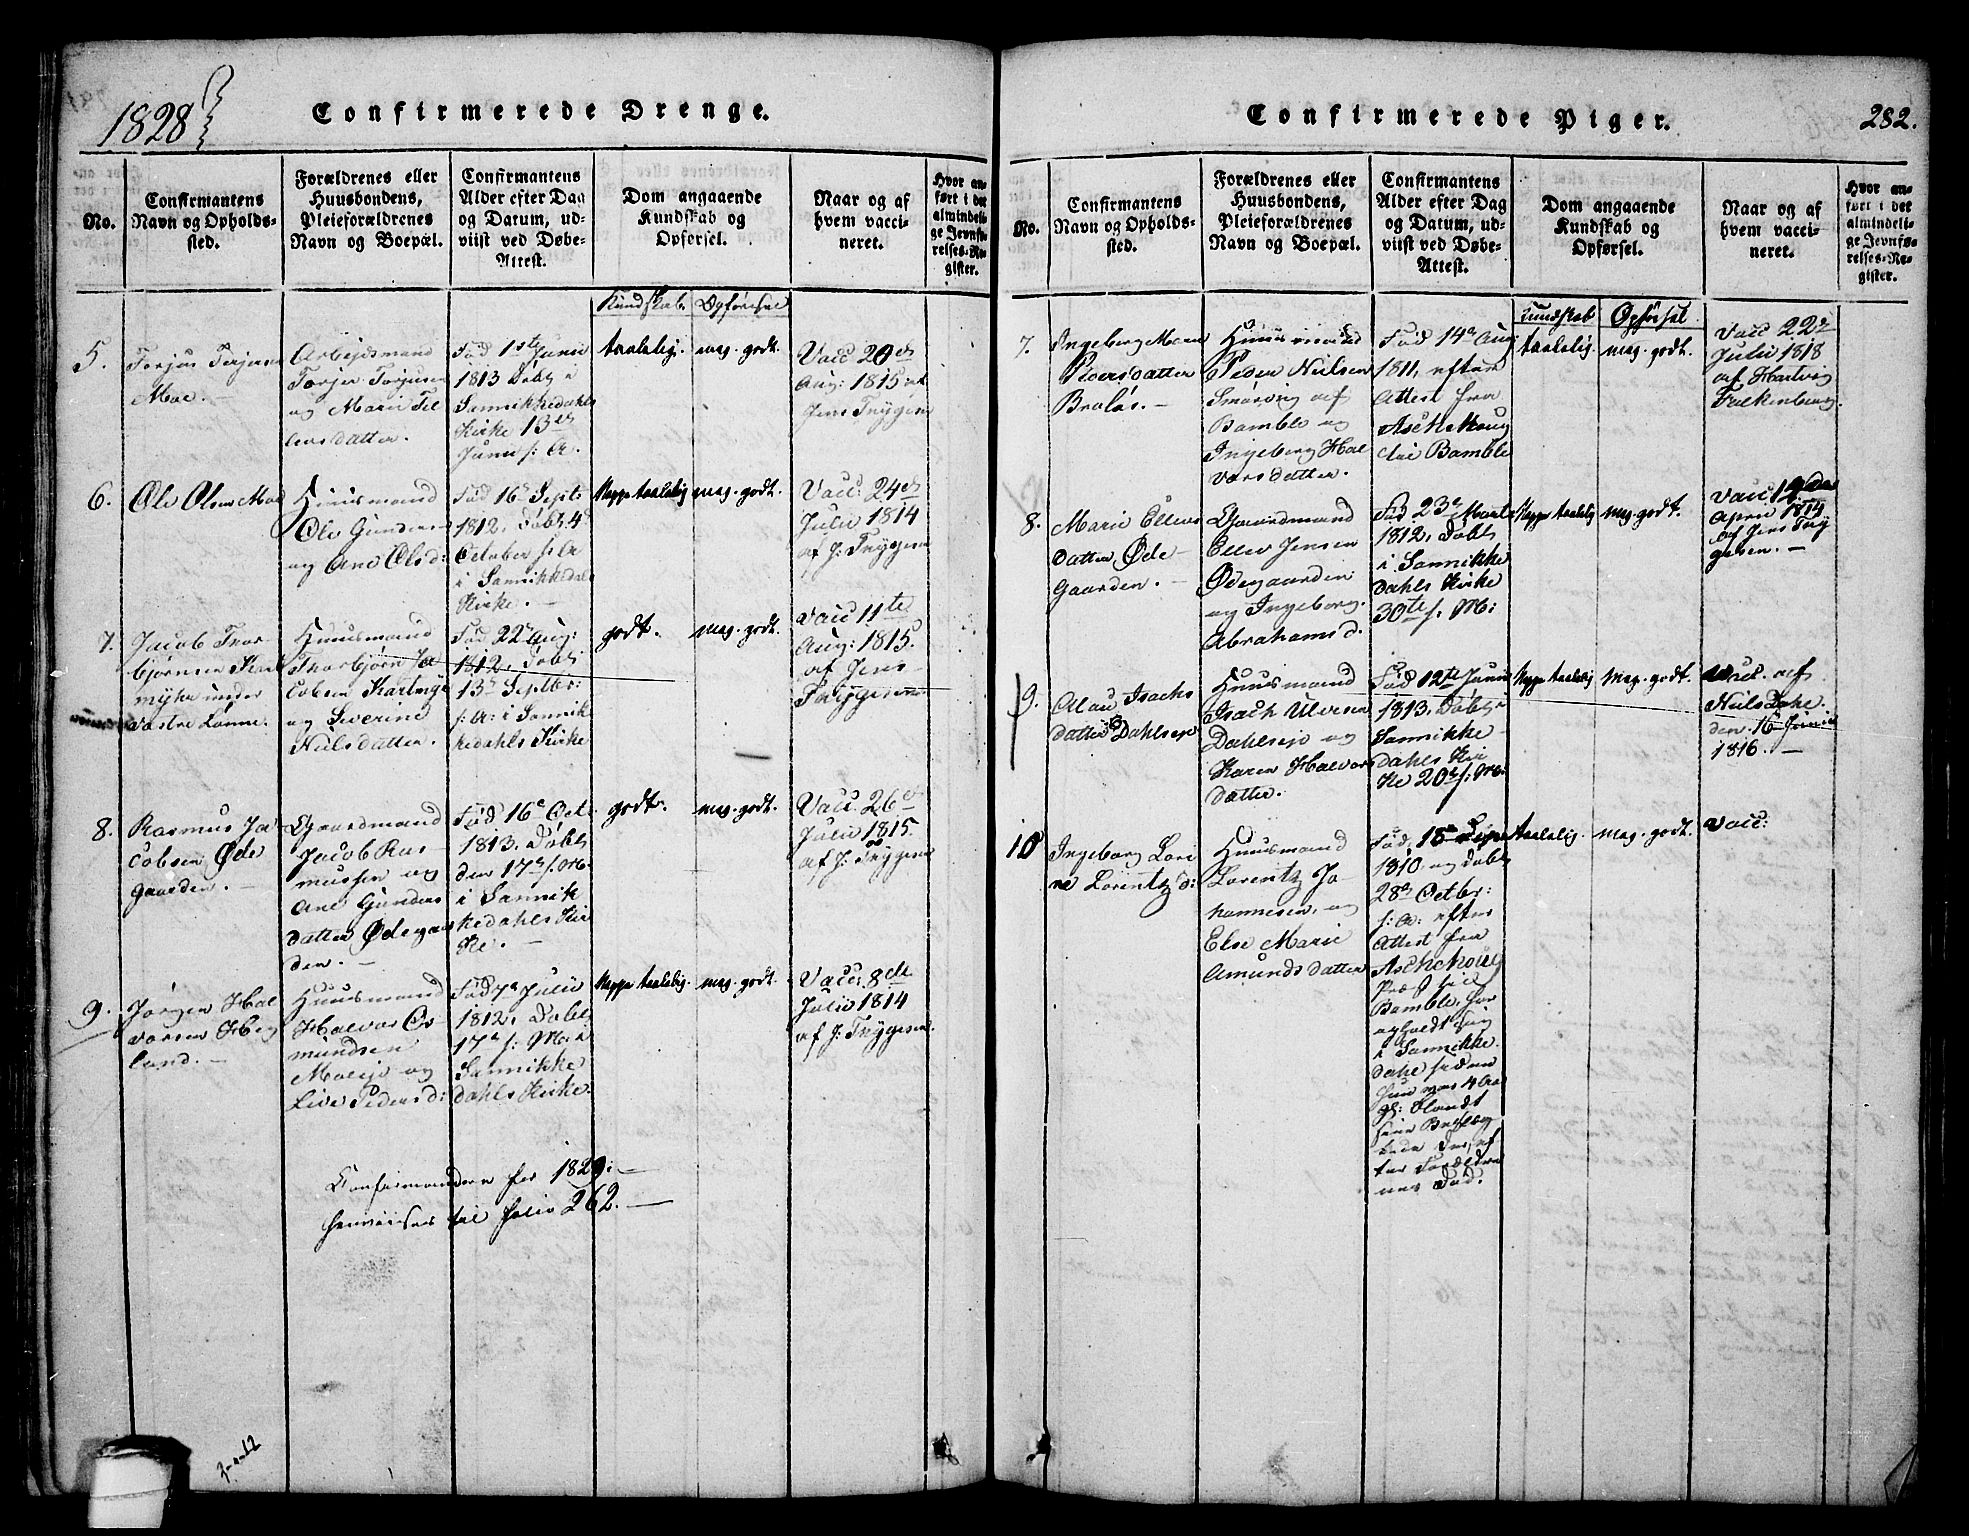 1828
Confirmerede Drenge.
No.
Confirmantens
Navn og Opholds-
sted.
Forældrenes eller
Huusbondens,
Pleieforældrenes
Navn og Boepæl.
Confirmantens
Alder efter Dag
og Datum, ud-
viist ved Døbe-
Attest.
Dom angaaende
Kundskab og
Opførsel.
Naar og af
hvem vacci-
neret.
Hvor an-
ført i det
almindeli-
ge Jevnfø-
relses-Re-
gister.
Kundskab. Opførsel
5.
Torjus Terjesen
Moe. –
Arbejdsmand
Terjer Torjusen
og Marie Tel
lefsdatter.
Fød 1ste Junii
1813 Døbt i
Sannikkedahls
Kirke 13de
Junii s: A.
taalelig.
meg. godt.
Vacc 20de
Aug: 1815 af
Jens Trygesen
6.
Ole Olsen Moe
Huusmand
Ole Gunders
og Ane Olsd:
Fød 16de Sept:
1812. Døbt 4de
October s: A
i Sannikkedals
Kirke. –
Neppe taalelig
meg. godt.
Vacc: 24de
Julii 1814
af J: Trygesen
7.
Jacob Thor-
bjørnsen Kart
myhr under
Vestre Lønne:
Huusmand
Thorbjørn Ja
cobsen Kartmyhr
og Severine
Nielsdatter.
Fød 22de Aug:
1812. Døbt
13de Septbr:
s: A: i Sannik
kedahls Kirke
godt.
meg. godt.
Vacc 11te
Aug: 1815.
af Jens
Tryggesen
8.
Rasmus Ja
cobsen Øde
gaarden. –
Gaardmand
Jacob Ras-
mussen og
Ane Gunders
datter Ødegaar
den. –
Fød 16de Oct:
1813. Døbt
den 17de s: M:
i Sannik
kedahls Kir
ke. –
godt.
meg. godt.
Vacc. 26de
Julii 1815.
af J: Trygesen
9.
Jørgen Hal
vorsen Heg
land. –
Huusmand
Halvor Os-
mundsen
Moesje og
Live Pedersd:
Fød 7de Julii
1812. Døbt
17de s: M: i
Sannikke
dahls Kirke.
Neppe taalelig.
meg. godt.
Vacc: 8de
Julii 1814
af J: Trygesen.
Confirmanderne for 1829: –
henviises til folio 262. –
Confirmerede Piger.
282.
No.
Confirmantens
Navn og Opholds-
sted.
Forældrenes eller
Huusbondens,
Pleieforældrenes
Navn og Boepæl.
Confirmantens
Alder efter Dag
og Datum, ud-
viist ved Døbe-
Attest.
Dom angaaende
Kundskab og
Opførsel.
Naar og af
hvem vacci-
neret.
Hvor an-
ført i det
almindelig-
ge Jevnfø-
relses-Re-
gister.
Kundskab Opførsel
7.
Ingeborg Maren
Pedersdatter
Braløs. –
Huusmand
Peder Nielsen
Smørvig af
Bamble og
Ingeborg Hal
vorsdatter.
Fød 14de Aug:
1811. efter
Attest fra
Aschehoug
til Bamble
taalelig.
meg. godt.
Vacc 22de
Julii 1818
af Hartvig
Falkenberg.
8.
Marie Ellevs
datter Øde-
gaarden. –
Gaardmand
Ellev Jensen
Ødegaarden
og Ingeborg
Abrahamsd.
Fød 23de Marts
1812. Døbt
i Sannikke
dahls Kirke
30te s: M:
Neppe taalelig
meg. godt.
Vacc
April 1814
af Jens Try
gesen. –
9.
Olau Isachs
datter Dahlseje
Huusmand
Isach Ulvsen
Dahlseje og
Karen Halvors
datter.
Fød 12te Junii
1813. Døbt i
Sannikke
dahls Kir
ke 20de s: M:
Neppe taalelig
meg. godt.
Vacc. af
Niels Dahl.
den 16 Junii
1816. –
10
Ingeborg Lori
ne Lorentz d:
Huusmand
Lorentz Jo
hannesen, og
Else Marie
Amundsdatter
Fød, 15de
1810. og Døbt
28de Octbr:
s: A: efter
Attest fra
Aschehoug
Præst til
Bamble, har
opholdt sig
i Sannikke
dahl siden
hun var 4 Aar
gl: blandt
sine Beslæg
tede der, ef
ter Forældre
nes Død.
taalelig.
meg. godt.
Vacc: